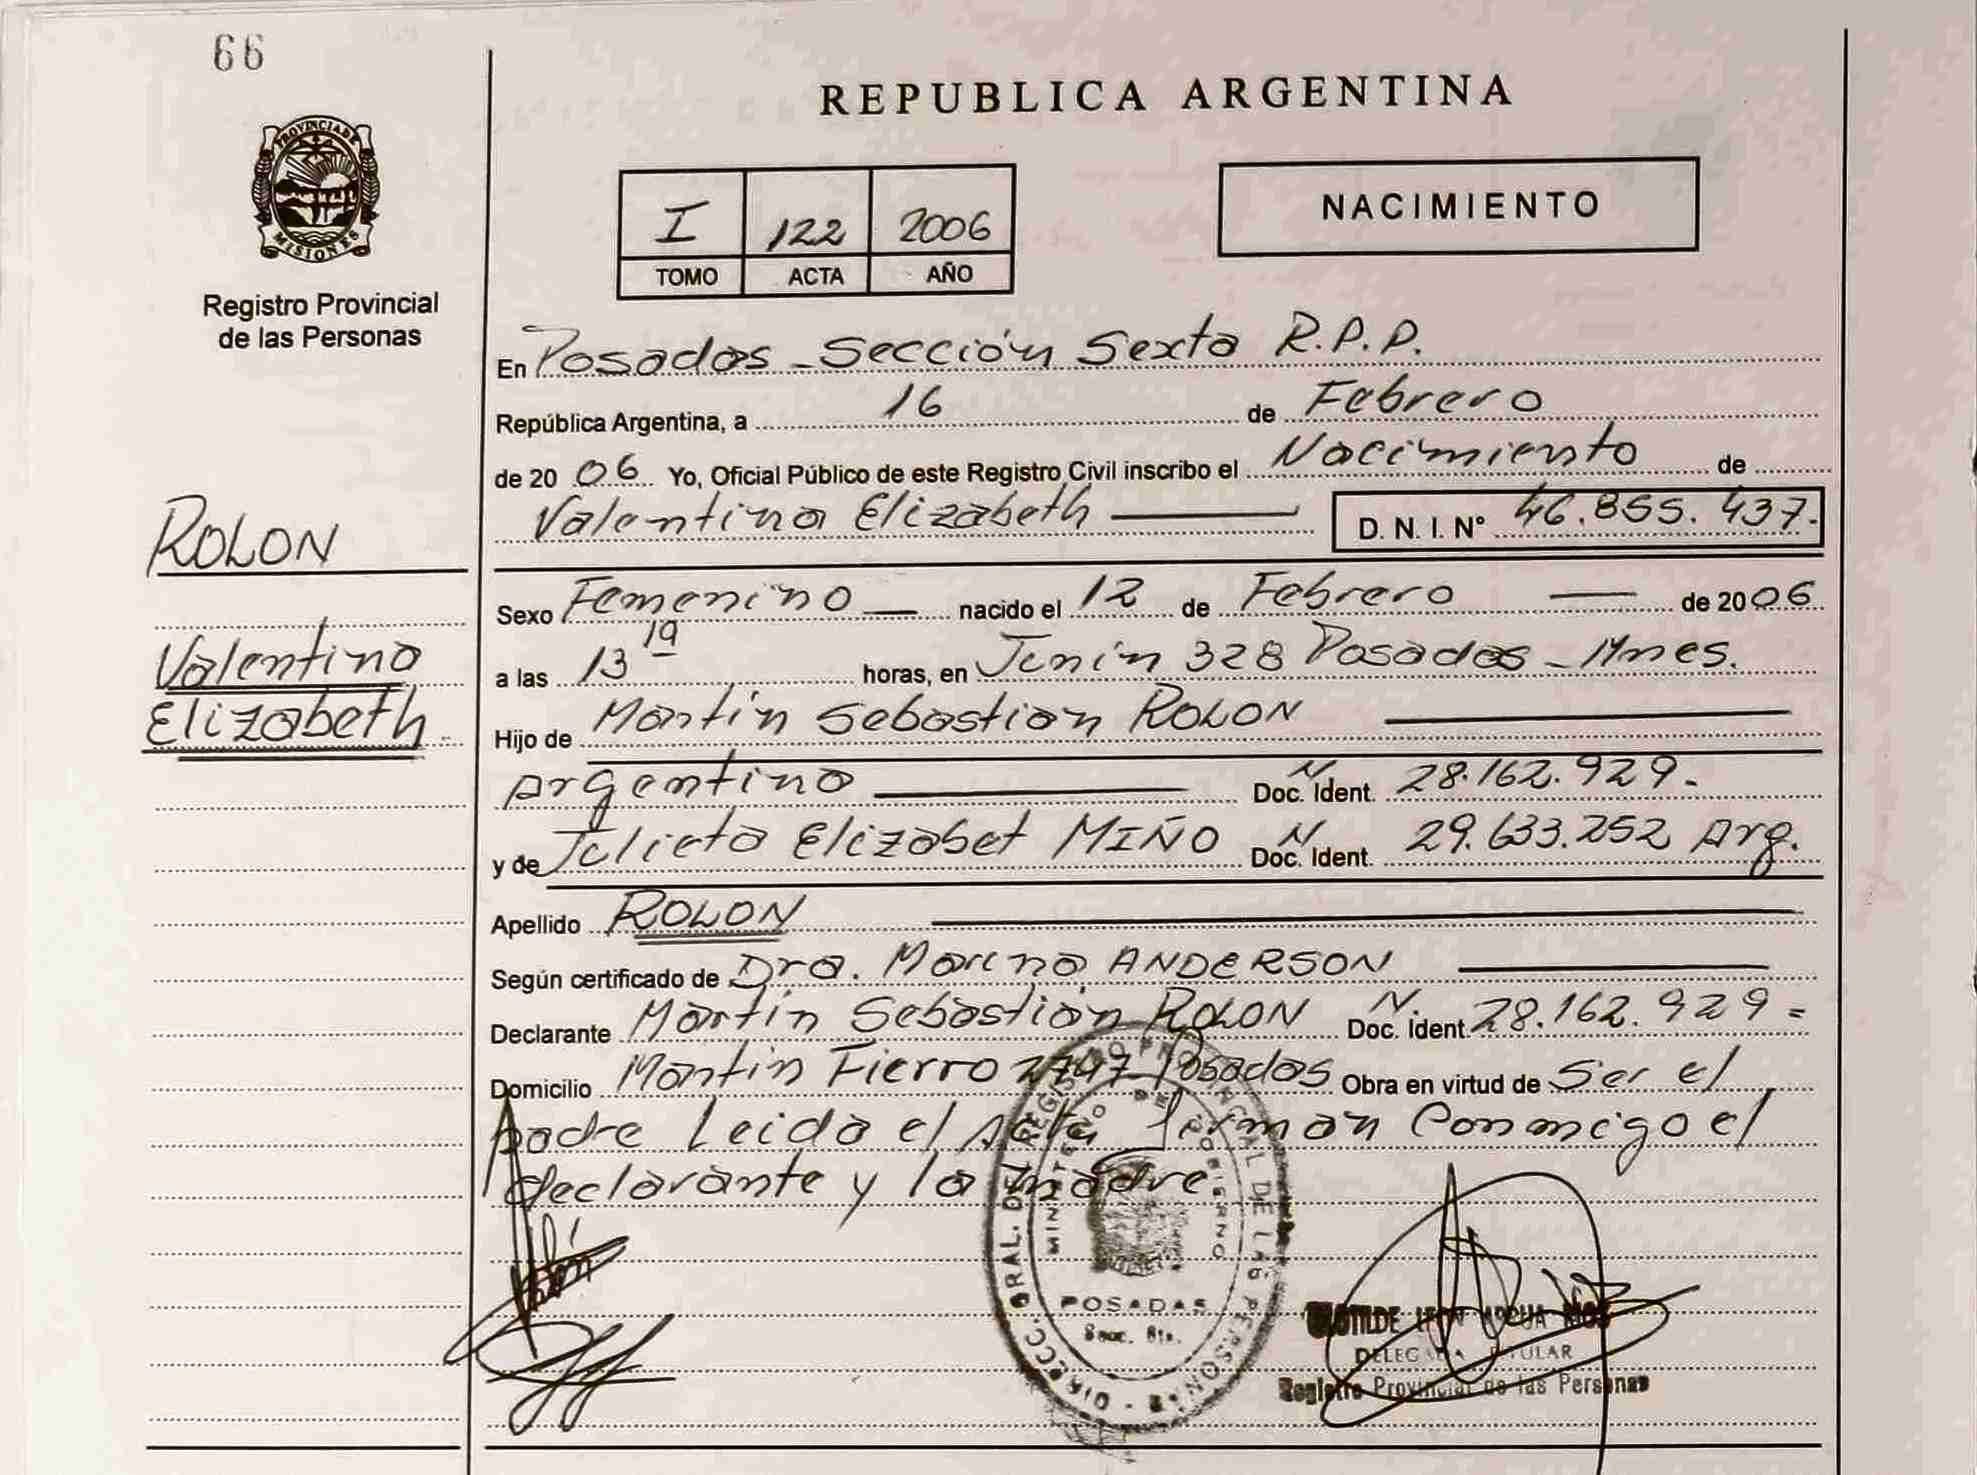 66
PROVINCIA DE
MISIONES
Registro Provincial
de las Personas
REPUBLICA ARGENTINA
I 122 2006
TOMO ACTA AÑO
NACIMIENTO
En Posadas - Sección Sexta R.P.P.
República Argentina, a 16 de Febrero
de 2006 Yo, Oficial Público de este Registro Civil inscribo el Nacimiento de
Valentina Elizabeth D. N. I. N° 46.855.437.
ROLON
Valentina
Elizabeth
Sexo Femenino nacido el 12 de Febrero de 2006
a las 13 19 horas, en Junín 328 Posadas - Mnes.
Hijo de Martín Sebastián ROLON
Argentino N Doc. Ident. 28.162.929.-
y de Julieta Elizabet MIÑO N Doc. Ident. 29.633.252 Arg.
Apellido ROLON
Según certificado de Dra. Marina ANDERSON
Declarante Martín Sebastián ROLON N. Doc. Ident. 28.162.929=
Domicilio Martín Fierro 2747 Posadas Obra en virtud de Ser el
padre Leida el Acta Firman Conmigo el
declarante y la madre
DIRECC. GRAL. DEL REGISTRO PROVINCIAL DE LAS PERSONAS
MINISTERIO DE GOBIERNO
POSADAS
Secc. 6ta.
DELEGADA TITULAR
Registro Provincial de las Personas